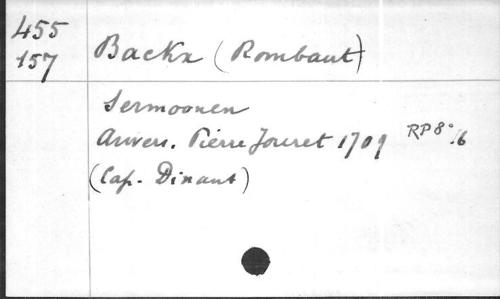 455
157
Backx (Rombaut)
Sermoonen
Anvers. Pierre Jouret 1709 RP 8° .6
(Cap. Dinant)